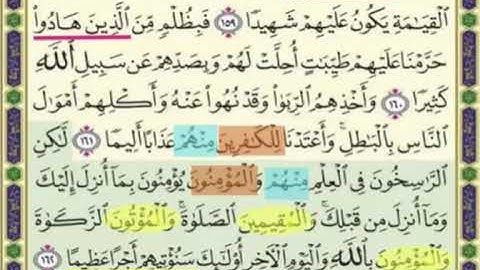 ٱلْقِيَٰمَةِ يَكُونُ عَلَيْهِمْ شَهِيدًا ١٥٩ فَبِظُلْمٍ مِّنَ ٱلَّذِينَ هَادُوا۟
حَرَّمْنَا عَلَيْهِمْ طَيِّبَٰتٍ أُحِلَّتْ لَهُمْ وَبِصَدِّهِمْ عَن سَبِيلِ ٱللَّهِ
كَثِيرًا ١٦٠ وَأَخْذِهِمُ ٱلرِّبَوٰا۟ وَقَدْ نُهُوا۟ عَنْهُ وَأَكْلِهِمْ أَمْوَٰلَ
ٱلنَّاسِ بِٱلْبَٰطِلِ ۚ وَأَعْتَدْنَا لِلْكَٰفِرِينَ مِنْهُمْ عَذَابًا أَلِيمًا ١٦١ لَّٰكِنِ
ٱلرَّٰسِخُونَ فِى ٱلْعِلْمِ مِنْهُمْ وَٱلْمُؤْمِنُونَ يُؤْمِنُونَ بِمَآ أُنزِلَ إِلَيْكَ
وَمَآ أُنزِلَ مِن قَبْلِكَ ۚ وَٱلْمُقِيمِينَ ٱلصَّلَوٰةَ ۚ وَٱلْمُؤْتُونَ ٱلزَّكَوٰةَ
وَٱلْمُؤْمِنُونَ بِٱللَّهِ وَٱلْيَوْمِ ٱلْءَاخِرِ أُو۟لَٰٓئِكَ سَنُؤْتِيهِمْ أَجْرًا عَظِيمًا ١٦٢